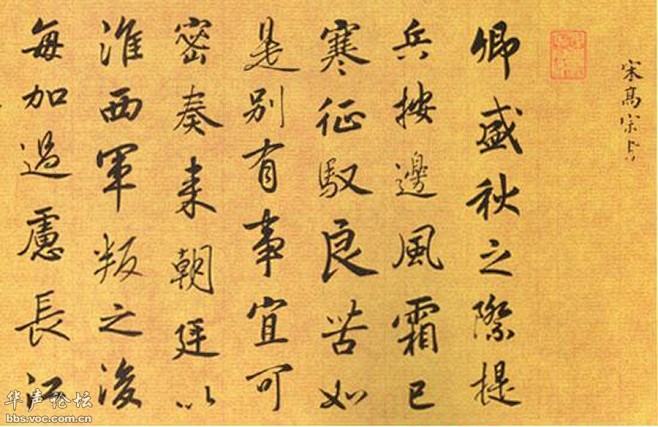 宋高宗書
卿盛秋之際提
兵按邊風霜已
寒征馭良苦如
是別有事宜可
密奏来朝廷以
淮西軍叛之後
每加過慮長江
华声论坛
bbs.voc.com.cn